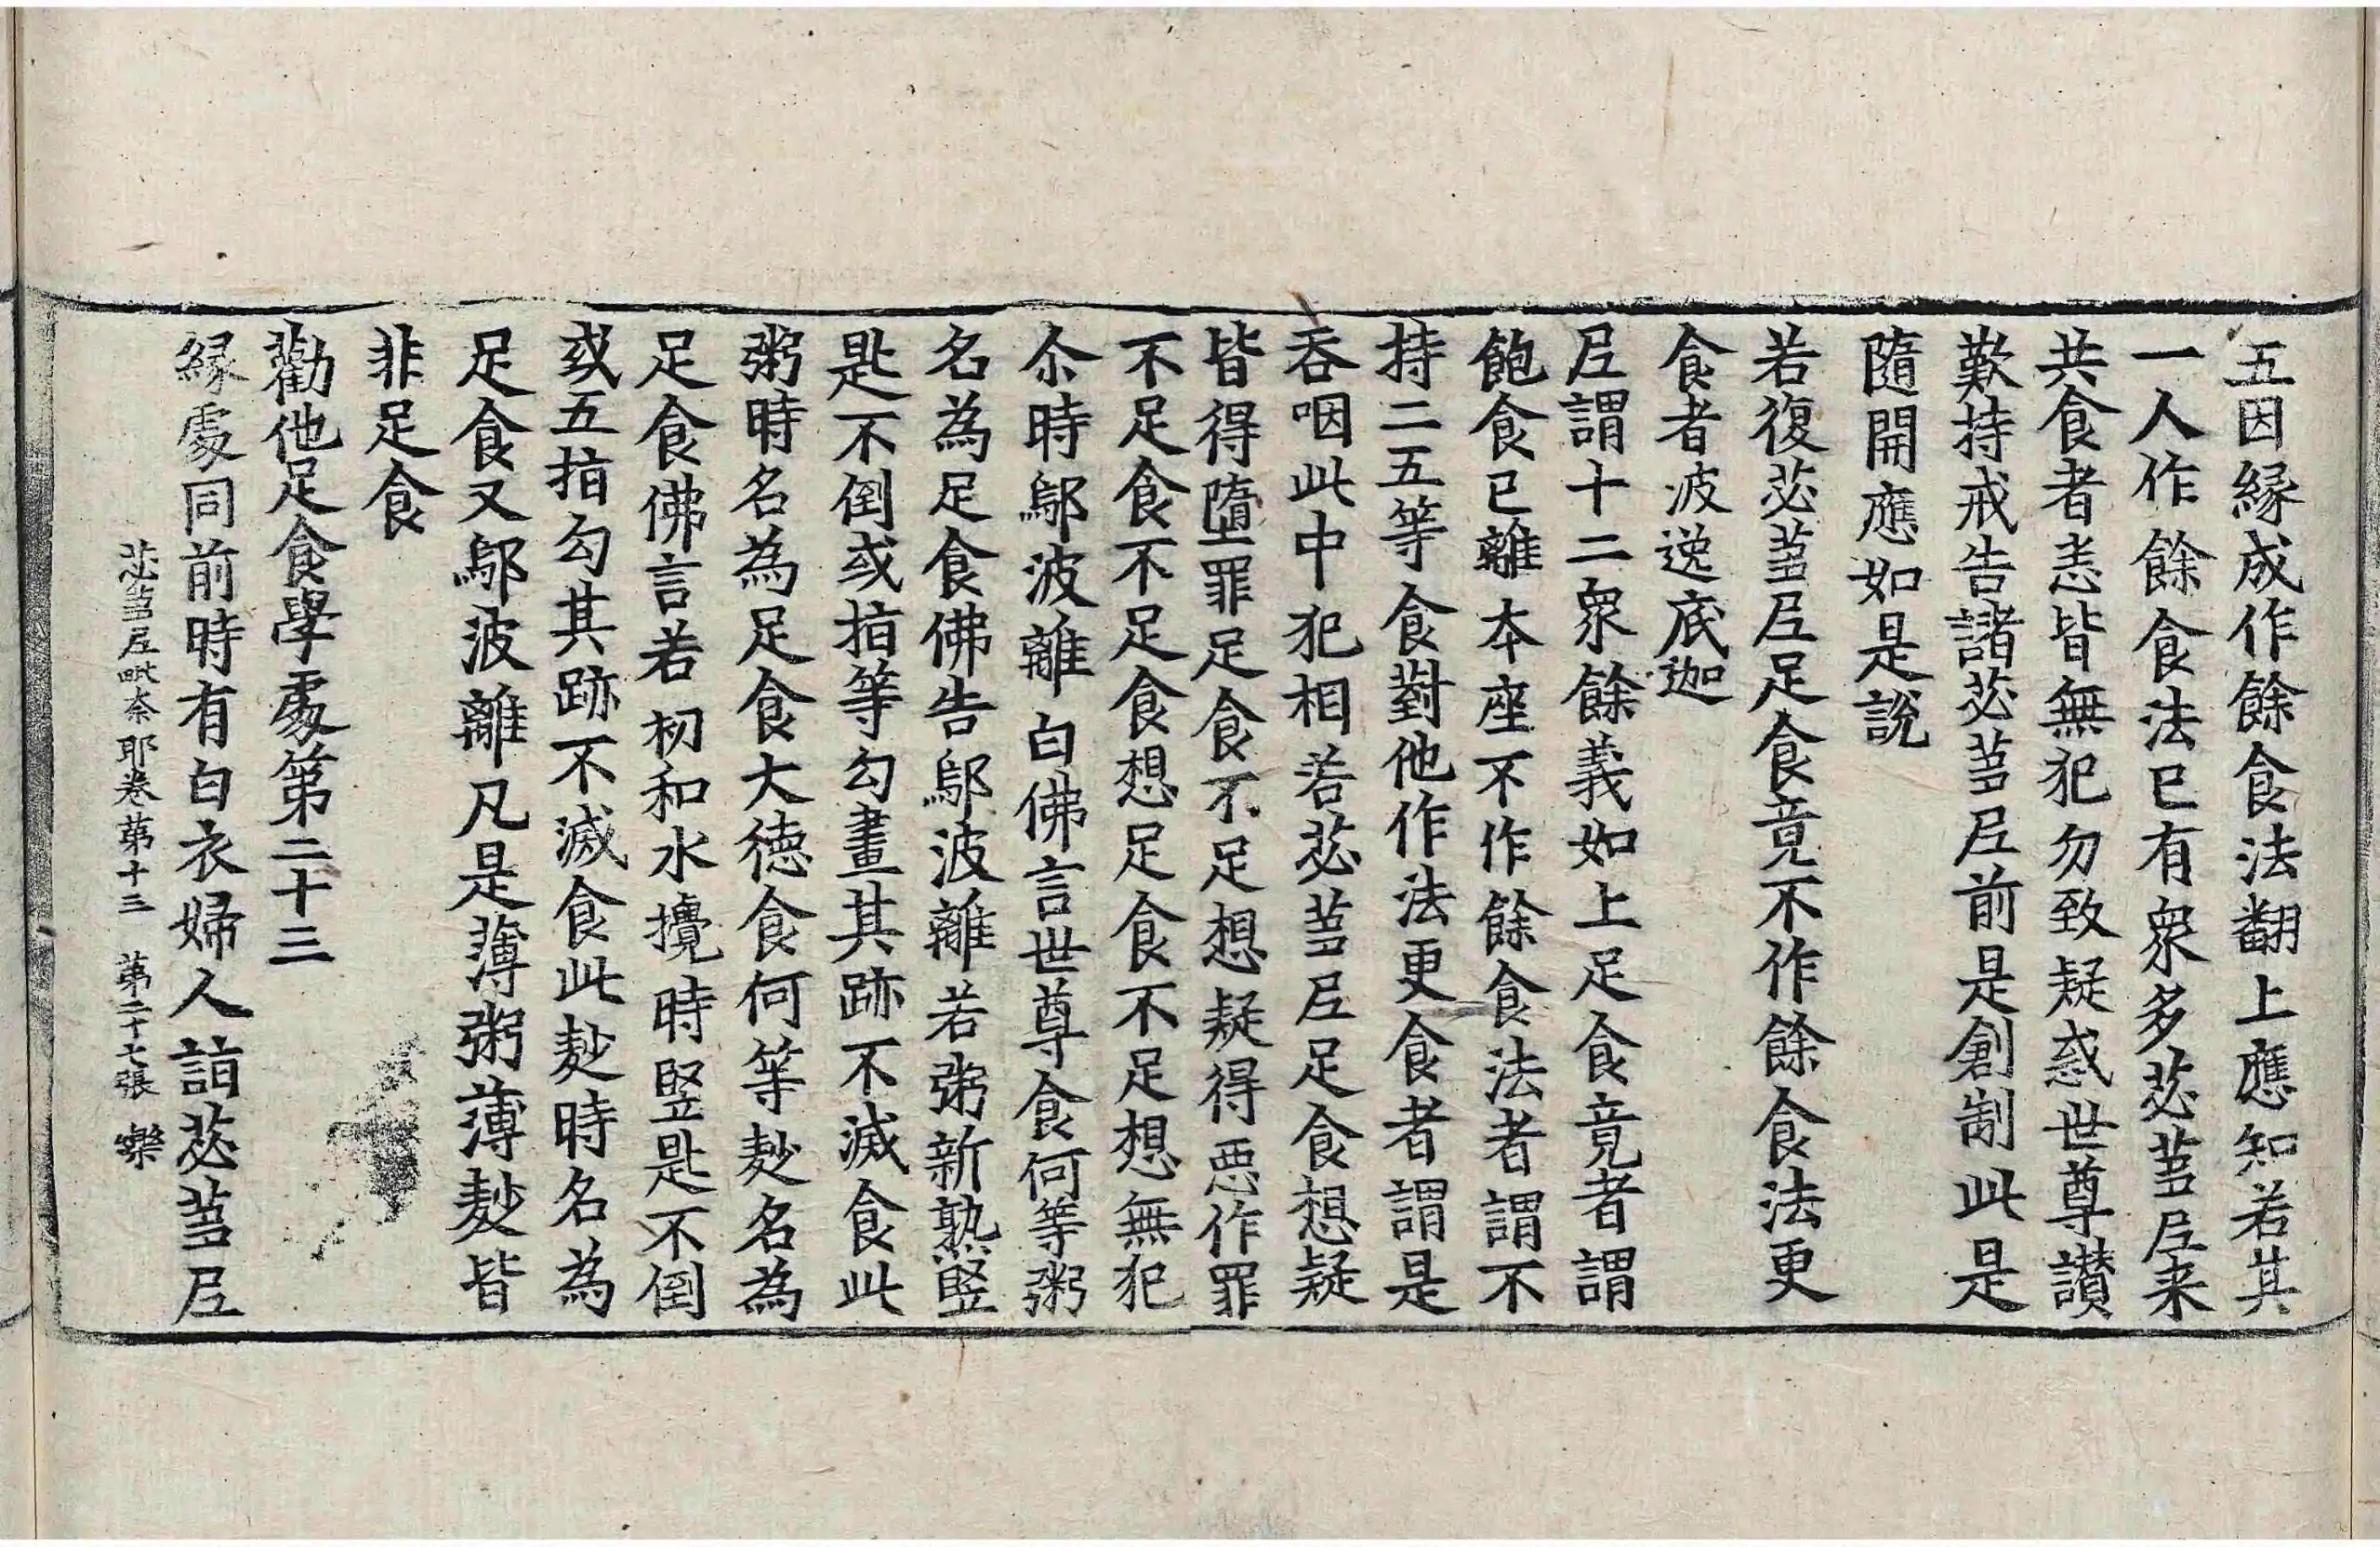 五因緣成作餘食法翻上應知若其
一人作餘食法已有衆多苾蒭尼来
共食者悉皆無犯勿致疑惑世尊讃
歎持戒告諸苾蒭尼前是創制此是
隨開應如是說
若復苾蒭尼足食竟不作餘食法更
食者波逸底迦
尼謂十二衆餘義如上足食竟者謂
飽食已離本座不作餘食法者謂不
持二五等食對他作法更食者謂是
吞咽此中犯相若苾蒭尼足食想疑
皆得墮罪足食不足想疑得惡作罪
不足食不足食想足食不足想無犯
尒時鄔波離白佛言世尊食何等粥
名為足食佛告鄔波離若粥新熟竪
匙不倒或指等勾畫其跡不滅食此
粥時名為足食大徳食何等麨名為
足食佛言若初和水攪時竪匙不倒
或五指勾其跡不滅食此麨時名為
足食又鄔波離凡是薄粥薄麨皆
非足食
勸他足食學處第二十三
緣處同前時有白衣婦人詣苾蒭尼
苾蒭尼毗奈耶卷第十三 第二十七張 樂